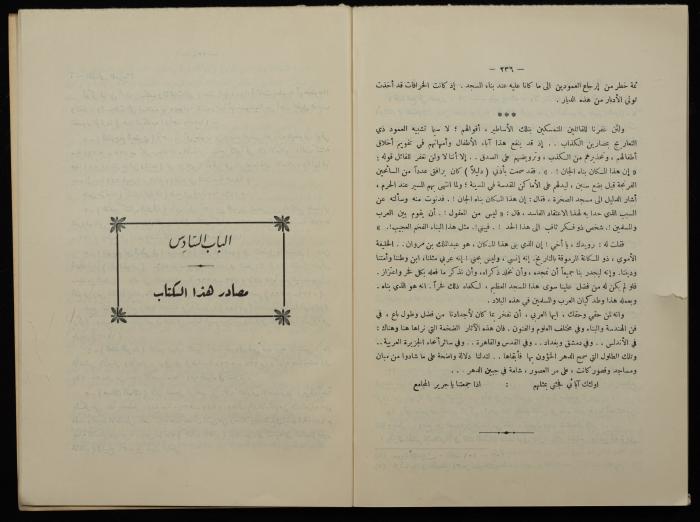 — ٢٣٦ —
ثمة خطر من إرجاع العمودين الى ما كانا عليه عند بناء المسجد . إذ كانت الخرافات قد أخذت
تولي الأدبار من هذه الديار .
***
ولئن غفرنا للقائلين المتمسكين بتلك الأساطير ، أقوالهم ؛ لا سيما تشبيه العمود ذي
التعاريج بمصارين الكذاب . . إذ قد ينفع هذا آباء الأطفال وأمهاتهم في تقويم أخلاق
أطفالهم ، وتحذيرهم من الكذب ، وترويضهم على الصدق . . إلا أننا لا ولن نغفر للقائل قوله :
« إن هذا المكان بناه الجان ! » . فقد سمعت بأذني ( دليلاً ) كان يرافق عدداً من السائحين
الفرنجة قبل بضع سنين ، ليدلهم على الأماكن المقدسة في المدينة ؛ ولما انتهى بهم السير عند الحرم ،
أشار الدليل الى مسجد الصخرة ، فقال : إن هذا المكان بناه الجان ! . فدنوت منه وسألته عن
السبب الذي حدا به لهذا الاعتقاد الفاسد ، قال : « ليس من المعقول ! . أن يقوم بين العرب
والمسلمين ! . شخص ذو فكر ثاقب الى هذا الحد ! . فيبني . مثل هذا البناء الفخم العجيب ! . »
فقلت له : رويدك ، يا أخي ! إن الذي بنى هذا المكان ، هو عبد الملك بن مروان . . الخليفة
الأموي ، ذو المكانة المرموقة بالتاريخ . إنه إنسي ، وليس بجني ! إنه عربي مثلنا ، ابن وطننا وأمتنا
وديننا . وإنه ليجدر بنا جميعاً أن نمجده ، وأن نخلد ذكراه ، وأن نذكر ما فعله بكل فخر واعتزاز .
فلو لم يكن له من فضل علينا سوى هذا المسجد العظيم ، لكفاه ذلك فخراً . انه هو الذي بناه .
وبعمله هذا وطد كيان العرب والمسلمين في هذه البلاد .
وانه لمن حقي وحقك ، ايها العربي ، أن نفخر بما كان لأجدادنا من فضل وطول باع ، في
فن الهندسة والبناء وفي مختلف العلوم والفنون . فان هذه الآثار الضخمة التي نراها هنا وهناك :
في الأندلس . . وفي دمشق وبغداد . . وفي القدس والقاهرة . . وفي سائر أنحاء الجزيرة العربية . .
وتلك الطلول التي سمح الدهر الخؤون بها فأبقاها . . لتدلنا دلالة واضحة على ما شادوا من مبان
ومساجد وقصور كانت ، على مر العصور ، شامة في جبين الدهر . . .
اولئك آبائي فجئني بمثلهم : اذا جمعتنا يا جرير المجامع
الباب السادس
مصادر هذا الكتاب